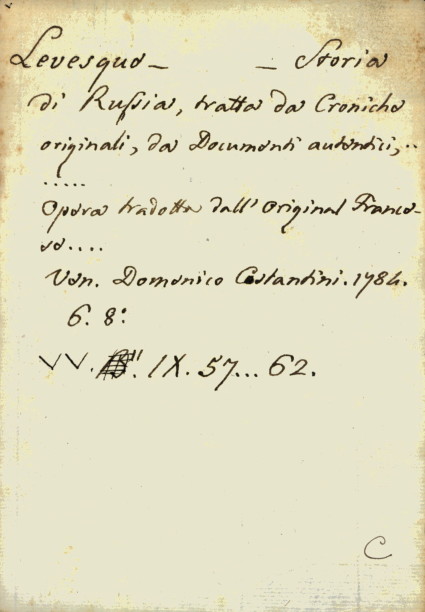 Levesque — — Storia
di Ruſsia, tratta da Croniche
originali, da Documenti autentici,..
.....
Opera tradotta dall' Original France-
se....
Ven. Domenico Costantini. 1784.
6. 8.º
VV. IX. 57... 62.
C